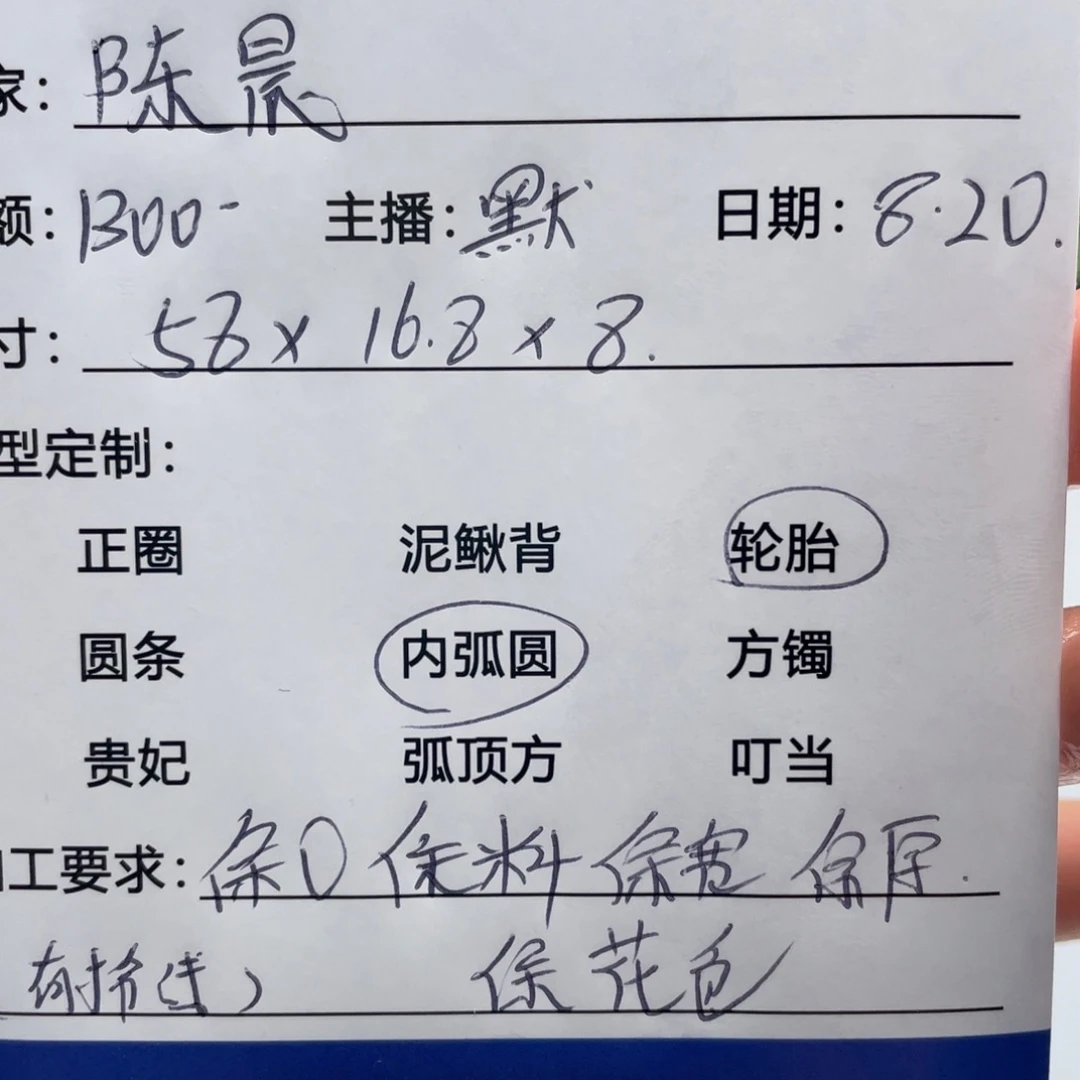 家：陈晨
额：1300- 主播：默 日期：8.20.
寸：58×16.8×8.
型定制：
正圈 泥鳅背 轮胎
圆条 内弧圆 方镯
贵妃 弧顶方 叮当
加工要求：保口 保料 保宽 保厚.
保花色